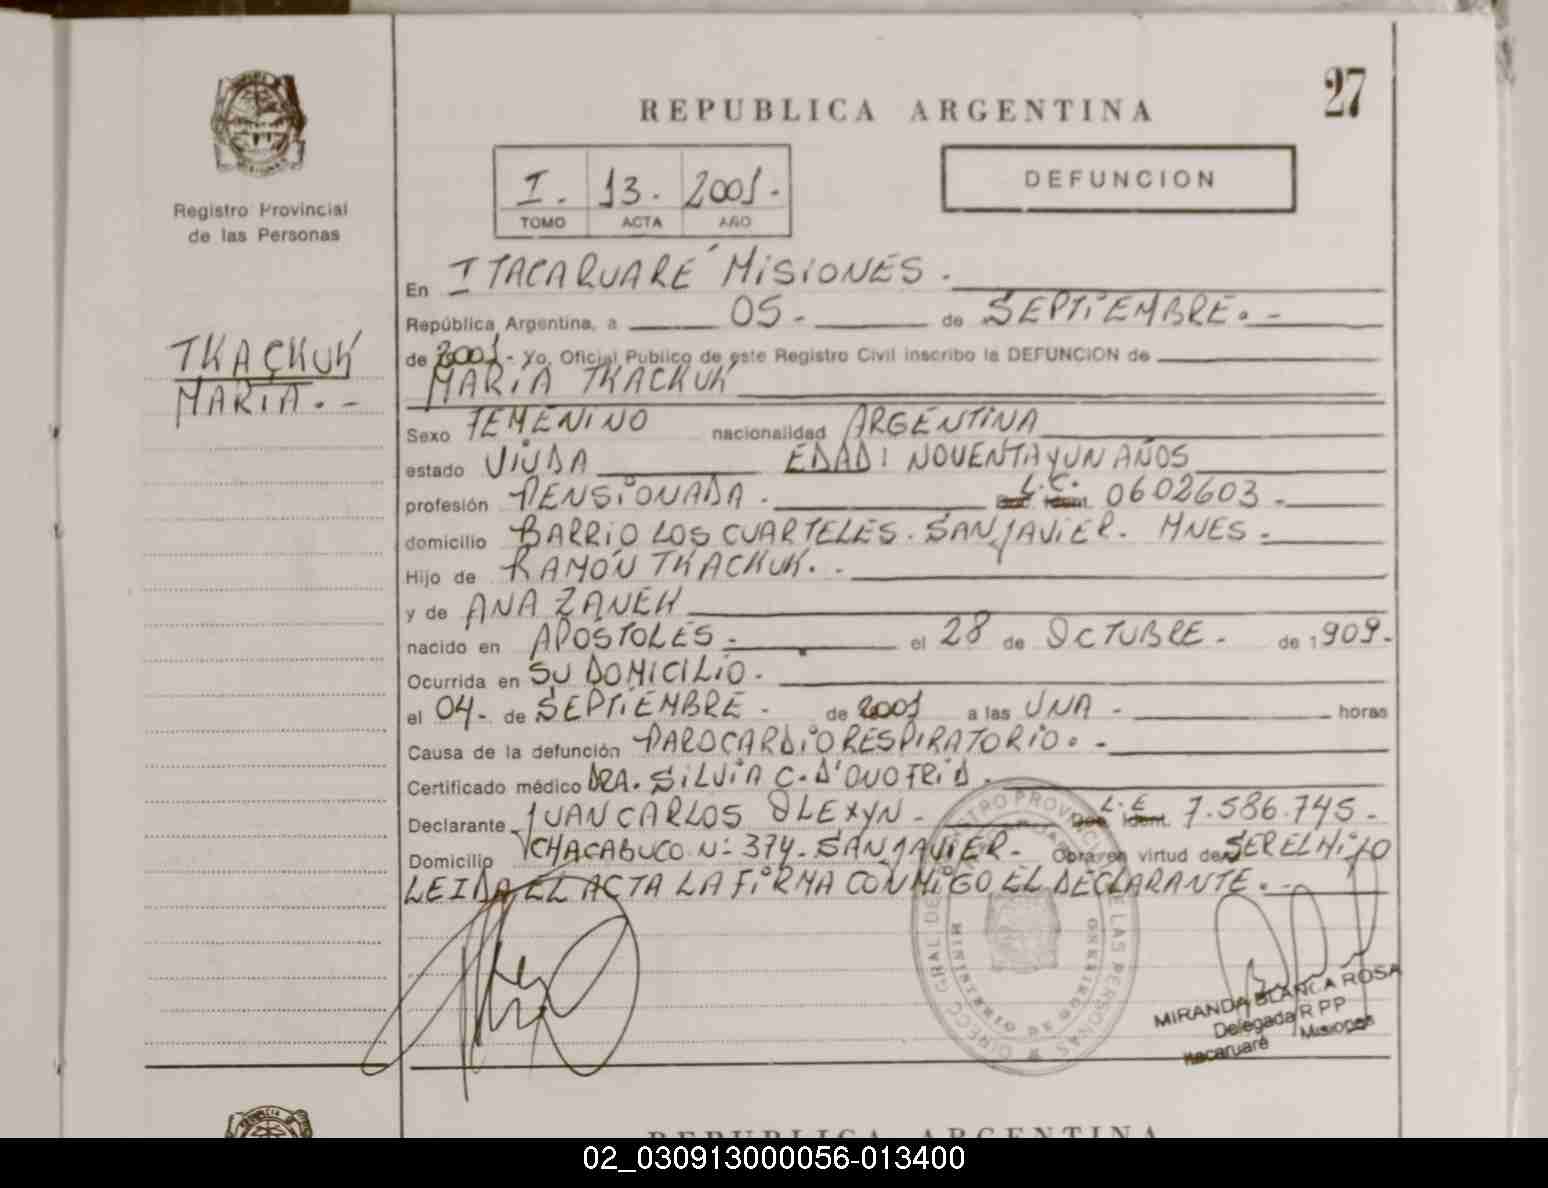 27
REPUBLICA ARGENTINA
Registro Provincial
de las Personas
I. 13. 2001.
TOMO ACTA AÑO
DEFUNCION
TKACKUK
MARIA.-
En ITACARUARE MISIONES.
República Argentina, a 05.- de SEPTIEMBRE.-
de 2001.- Yo, Oficial Público de este Registro Civil inscribo la DEFUNCION de
MARIA TKACKUK
Sexo FEMENINO nacionalidad ARGENTINA
estado VIUDA EDAD: NOVENTA Y UN AÑOS
profesión PENSIONADA. L.C. Doc. Ident. 0602603.-
domicilio BARRIO LOS CUARTELES. SAN JAVIER. MNES.-
Hijo de RAMÓN TKACKUK.-
y de ANA ZANEK
nacido en APOSTOLES.- el 28 de OCTUBRE.- de 1909.-
Ocurrida en SU DOMICILIO.
el 04.- de SEPTIEMBRE.- de 2001 a las UNA.- horas
Causa de la defunción PAROCARDIORESPIRATORIO.-
Certificado médico DRA. SILVIA C. D'ONOFRIO.
Declarante JUAN CARLOS OLEXYN.- L.E. Doc. Ident. 7.586.745.-
Domicilio CHACABUCO Nº 374. SAN JAVIER.- Obra en virtud de SER EL HIJO
LEIDA EL ACTA LA FIRMA CONMIGO EL DECLARANTE.-
DIRECC. GRAL. DEL REGISTRO PROVINCIAL DE LAS PERSONAS
MINISTERIO DE GOBIERNO
MIRANDA BLANCA ROSA
Delegada R PP
Itacaruaré Misiones
REPUBLICA ARGENTINA
02_030913000056-013400